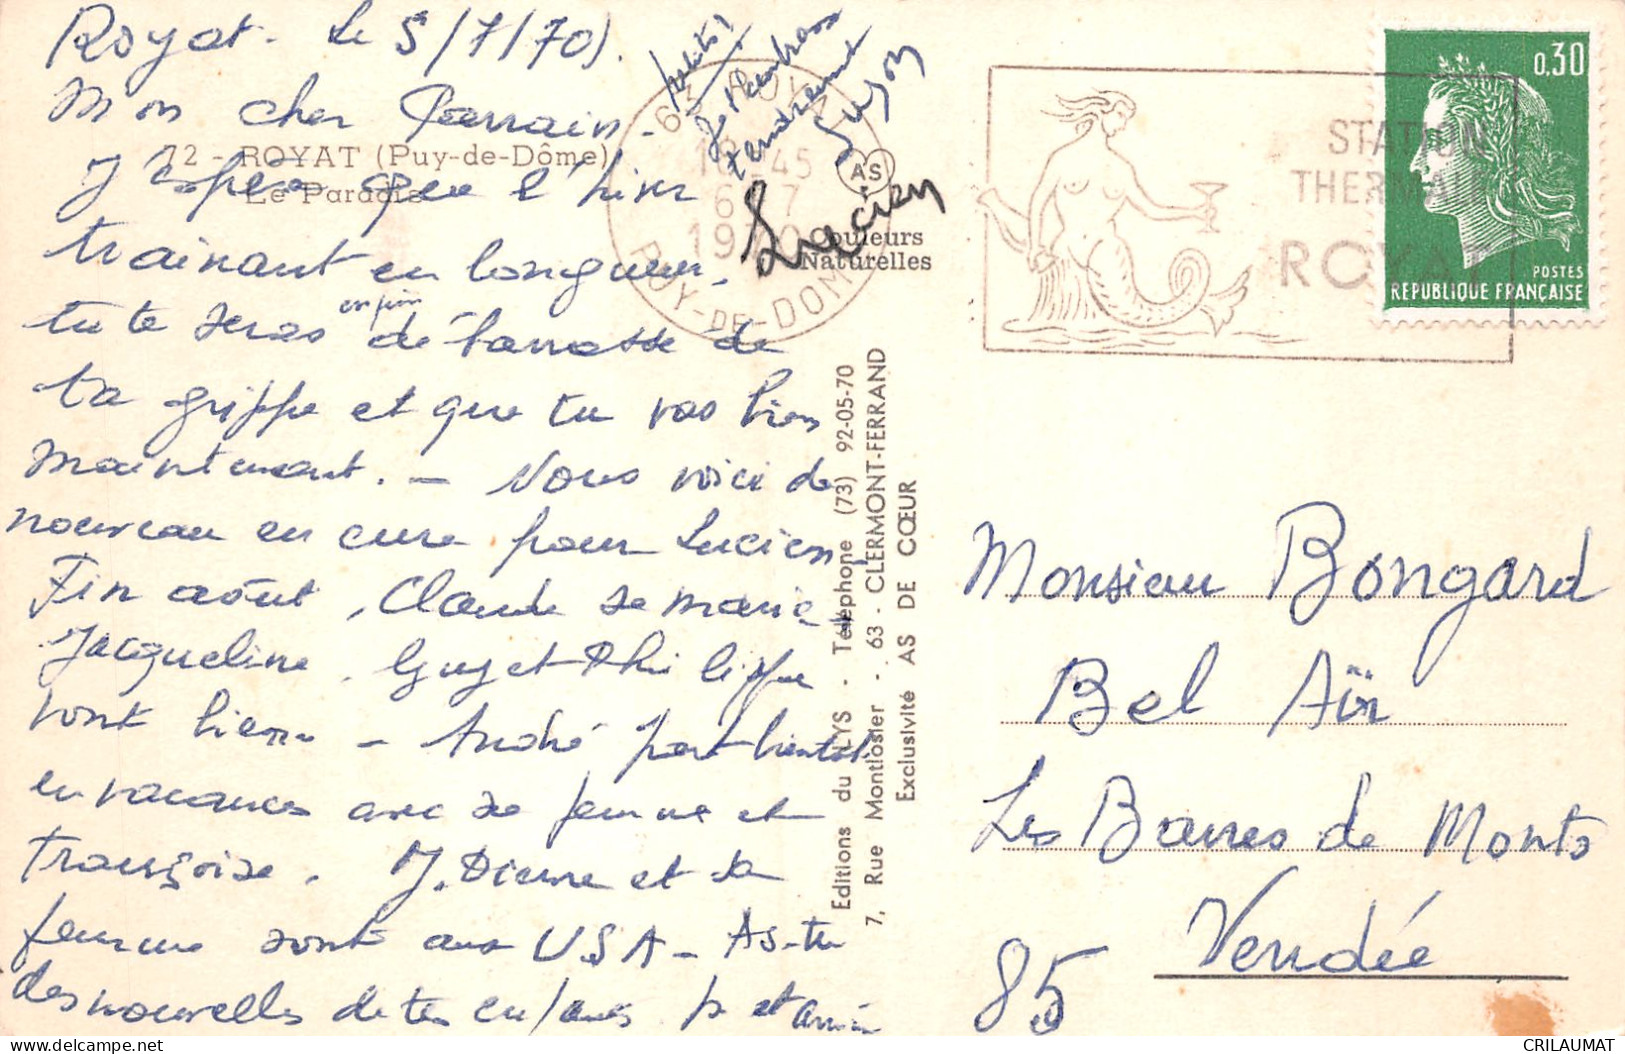 Royat. Le 5/7/70).
Mon cher Parrain.
72 - ROYAT (Puy-de-Dôme)
Le Paradis
J'espère que l'hiver
trainant en longueur,
tu te seras enfin débarrassé de
ta grippe et que tu vas bien
maintenant. – Nous voici de
nouveau en cure pour Lucien.
Fin août, Claude se marie.
Jacqueline, Guy et Philippe
vont bien – André part bientôt
en vacances avec sa femme et
Françoise. J. Pierre et sa
femme sont aux USA – As-tu
des nouvelles de tes enfants p et arrière
petits?
Je t'embrasse
tendrement
Suzon
Lucien
63 ROYAT
18 45
6 - 7
1970
PUY-DE-DOME
AS
Couleurs
Naturelles
Editions du LYS - Téléphone (73) 92-05-70
7, Rue Montlosier - 63 - CLERMONT-FERRAND
Exclusivité AS DE CŒUR
STATION
THERMALE
ROYAT
0,30
POSTES
REPUBLIQUE FRANÇAISE
Monsieur Bongard
Bel Aïr
Les Barres de Monts
Vendée
85
CRILAUMAT